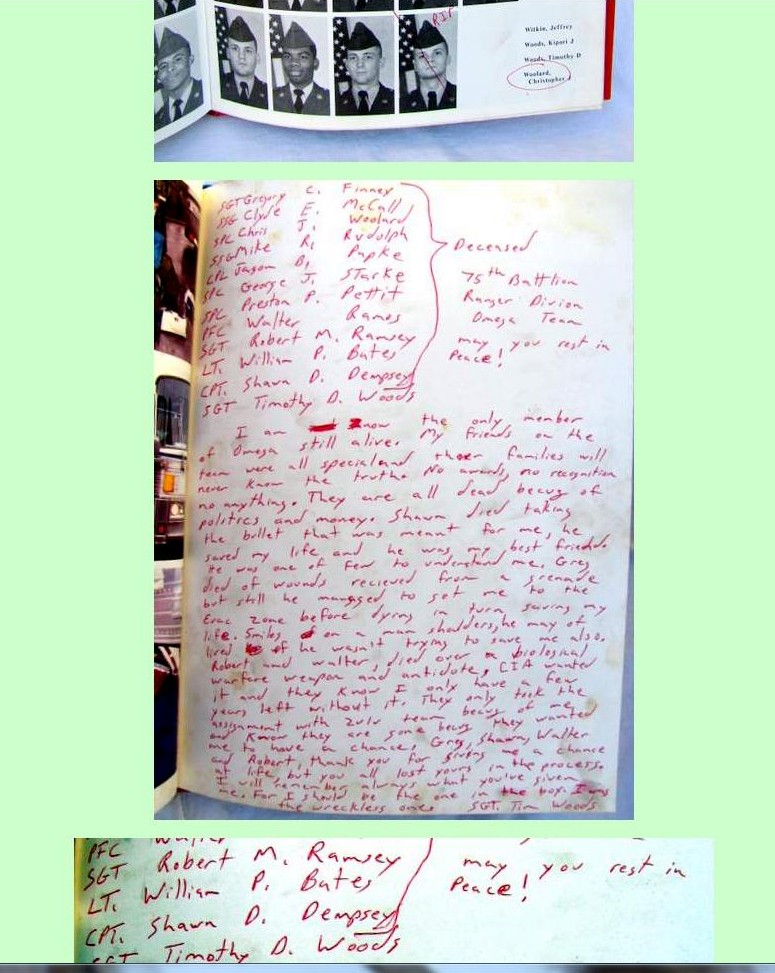 RIP
Witkin, Jeffrey
Woods, Kipari J
Woods, Timothy D
Woolard,
Christopher J
SGT Gregory C. Finney
SSG Clyde E. McCall
SPC Chris J. Woolard
SSG Mike R. Rudolph
CPL Jason B. Papke
SPC George J. STarke
SPC Preston P. Pettit
PFC Walter Ramos
SGT Robert M. Ramsey
LT. William P. Bates
CPT. Shawn D. Dempsey
SGT Timothy D. Woods
Deceased
75th Battlion
Ranger Divion
Omega Team
may you rest in
Peace!
I am now the only member
of Omega still alive. My friends on the
team were all special and their families will
never know the truth. No awards, no recognition
no anything. They are all dead becuz of
politics and money. Shawn died taking
the bullet that was meant for me, he
saved my life and he was my best friend.
He was one of few to understand me. Greg
died of wounds recieved from a grenade
but still he managed to get me to the
Evac zone before dying in turn saving my
life. 5 miles on a man shoulders, he may of
lived if he wasn't trying to save me also.
Robert and Walter, died over a biological
warfare weapon and antidote, CIA wanted
it and they know I only have a few
years left without it. They only took the
assignment with Zulu team becuz of me
and know they are gone becuz they wanted
me to have a chance. Greg, Shawn, Walter
and Robert, thank you for giving me a chance
at life, but you all lost yours in the process.
I will remember always what you've given
me. For I should be the one in the box. I was
the wreckless one. SGT. Tim Woods
PFC Walter
SGT Robert M. Ramsey
LT. William P. Bates
CPT. Shawn D. Dempsey
SGT Timothy D. Woods
may you rest in
Peace!